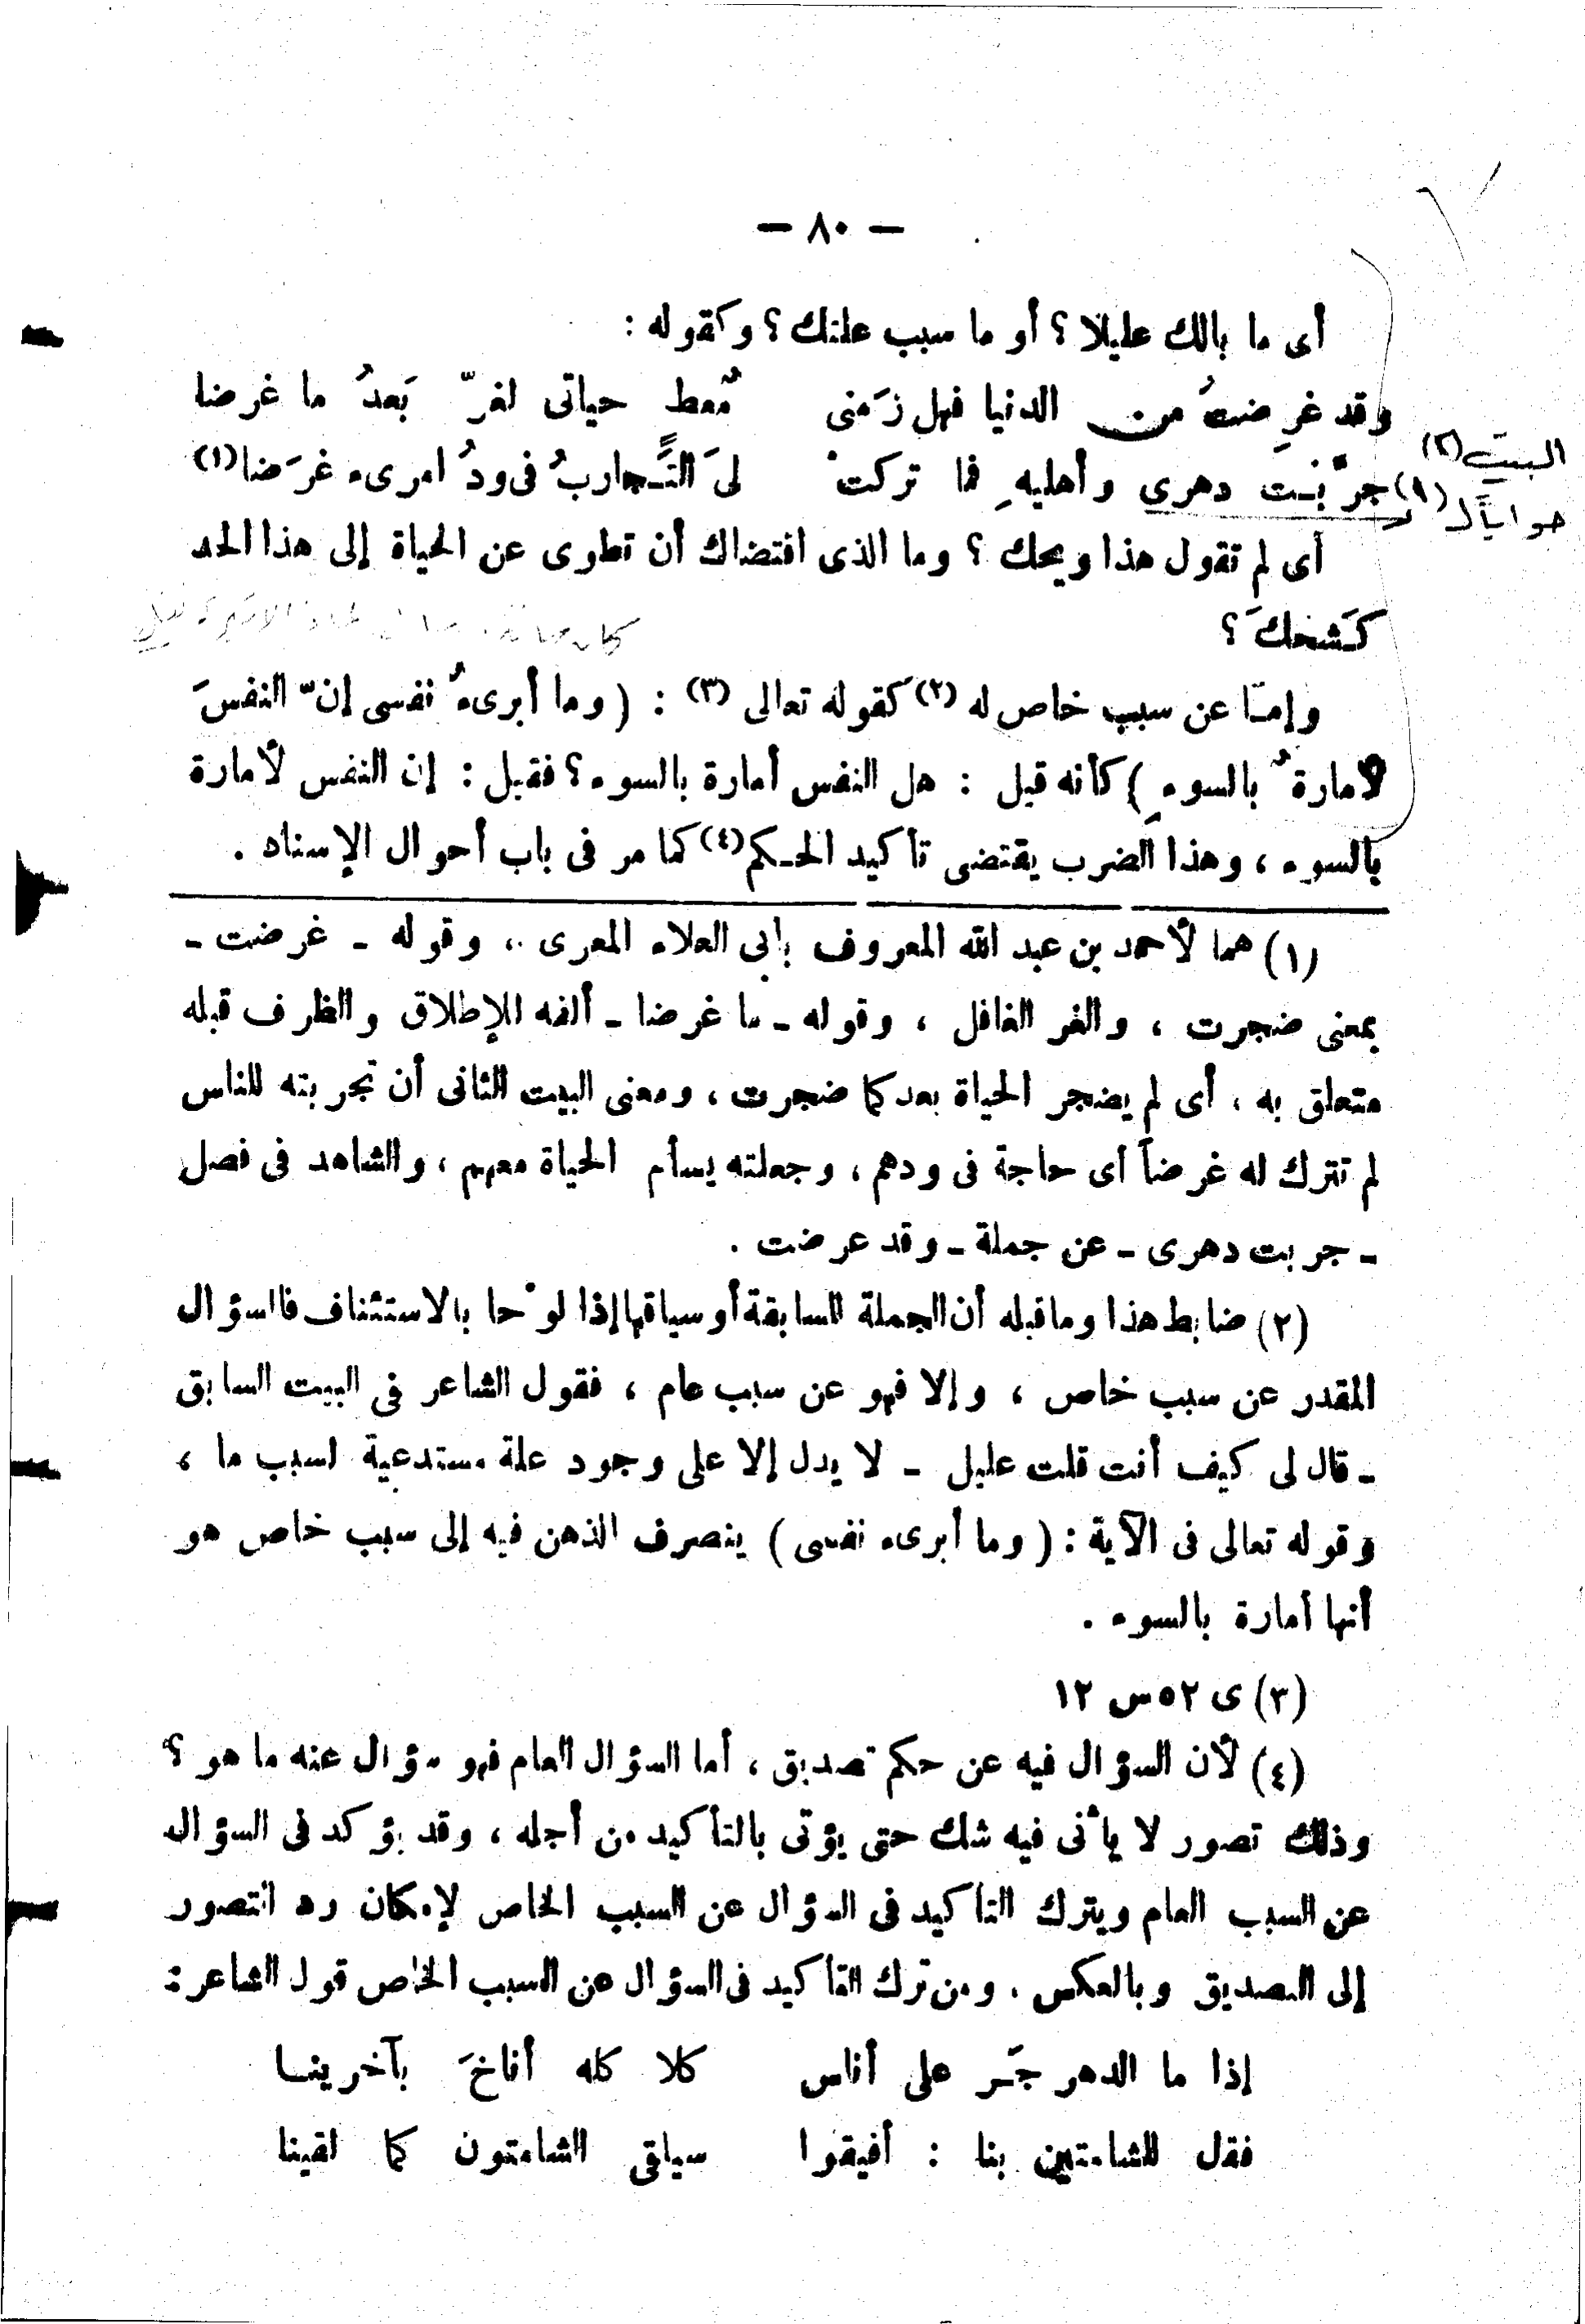 — ٨٠ —
أى ما بالك عليلا ؟ أو ما سبب علتك ؟ وكقوله :
وقد غرِضتُ من الدنيا فهل زَمنى مُعط حياتى لغرّ بَعدُ ما غرضا
جرّبْت دهرى وأهليهِ فما تركتْ لىَ التَّجاربُ فى ودُ امرىء غرَضا (١)
البيت (٢)
جواباً لـ (١)
أى لم تقول هذا ويحك ؟ وما الذى اقتضاك أن تطوى عن الحياة إلى هذا الحد
كَشحكَ ؟
وإمّا عن سبب خاص له (٢) كقوله تعالى (٣) : ( وما أبرىءُ نفسى إنّ النفسَ
لأمارةٌ بالسوءِ ) كأنه قيل : هل النفس أمارة بالسوء ؟ فقيل : إن النفس لأمارة
بالسوء ، وهذا الضرب يقتضى تأكيد الحكم (٤) كما مر فى باب أحوال الإسناد .
(١) هما لأحمد بن عبد الله المعروف بأبى العلاء المعرى ، وقوله - غرضت -
بمعنى ضجرت ، والغر الغافل ، وقوله - ما غرضا - ألفه للإطلاق والظرف قبله
متعلق به ، أى لم يضجر الحياة بعد كما ضجرت ، ومعنى البيت الثانى أن تجربته للناس
لم تترك له غرضاً أى حاجة فى ودهم ، وجعلته يسأم الحياة معهم ، والشاهد فى فصل
- جربت دهرى - عن جملة - وقد عرضت .
(٢) ضابط هذا وما قبله أن الجملة السابقة أو سياقها إذا لوّحا بالاستئناف فالسؤال
المقدر عن سبب خاص ، وإلا فهو عن سبب عام ، فقول الشاعر فى البيت السابق
- قال لى كيف أنت قلت عليل - لا يدل إلا على وجود علة مستدعية لسبب ما ،
وقوله تعالى فى الآية : ( وما أبرىء نفسى ) ينصرف الذهن فيه إلى سبب خاص هو
أنها أمارة بالسوء .
(٣) ى ٥٢ س ١٢
(٤) لأن السؤال فيه عن حكم تصديق ، أما السؤال العام فهو سؤال عنه ما هو ؟
وذلك تصور لا يأتى فيه شك حتى يؤتى بالتأكيد من أجله ، وقد يؤكد فى السؤال
عن السبب العام ويترك التأكيد فى السؤال عن السبب الخاص لإمكان رد التصور
إلى التصديق وبالعكس . ومن ترك التأكيد فى السؤال عن السبب الخاص قول الشاعر :
إذا ما الدهر جَر على أناس كلا كله أناخَ بآخرينا
فقل للشامتين بنا : أفيقوا سيلقى الشامتون كما لقينا